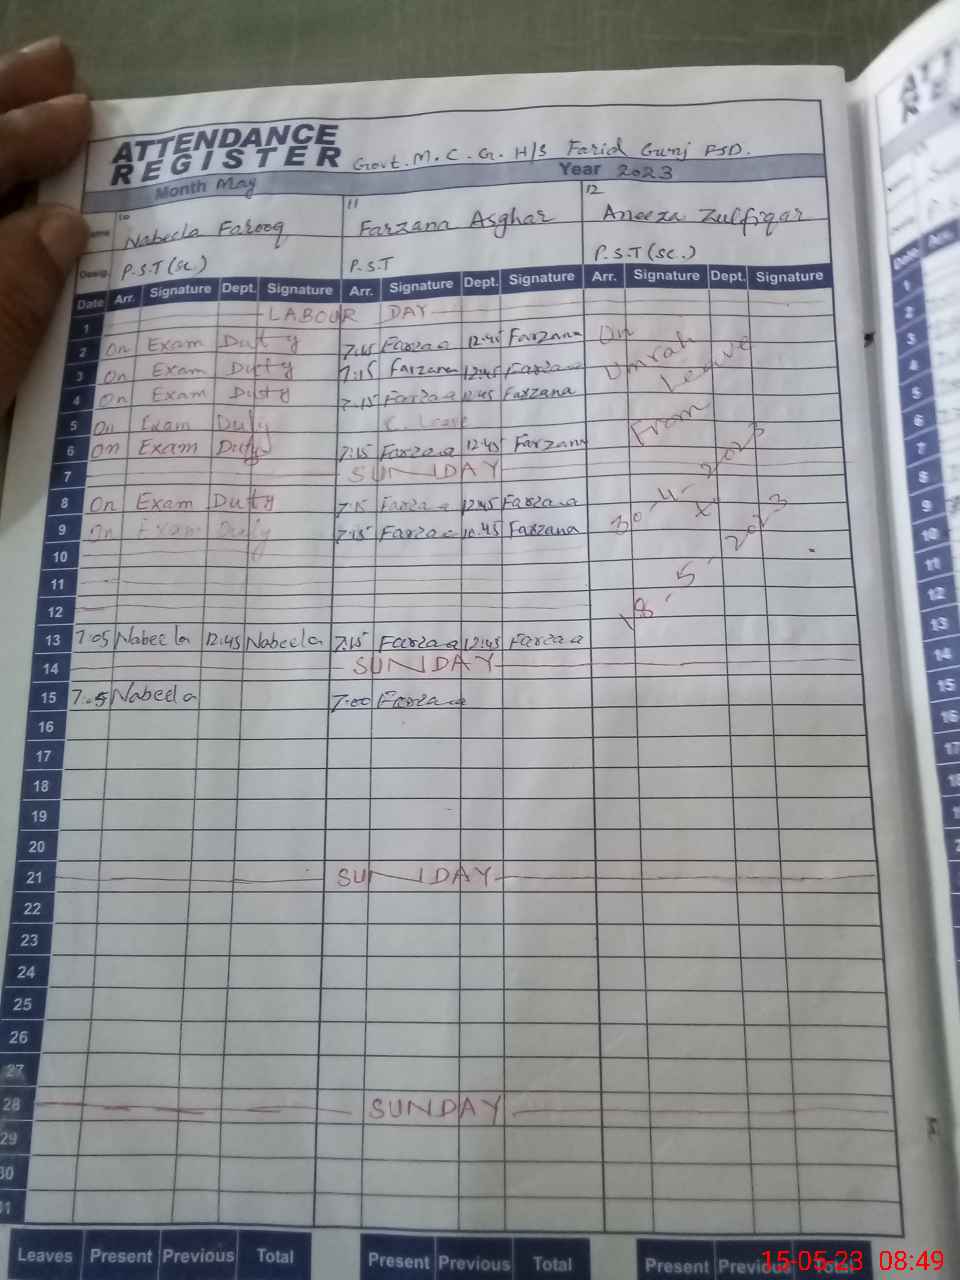 ATTENDANCE
REGISTER Govt. M. C. G. H/S Farid Gunj FSD.
Month May Year 2023
10 11 12
Name Nabeela Farooq Farzana Asghar Aneeza Zulfiqar
Desig. P.S.T (SC.) P.S.T P.S.T (SC.)
Date Arr. Signature Dept. Signature Arr. Signature Dept. Signature Arr. Signature Dept. Signature
1 LABOUR DAY
2 On Exam Duty 7:15 Farzana 12:45 Farzana On
3 On Exam Duty 7:15 Farzana 12:45 Farzana Umrah
4 On Exam Duty 7:15 Farzana 12:45 Farzana Leave
5 On Exam Duty C. Leave
6 On Exam Duty 7:15 Farzana 12:45 Farzana From
7 SUNDAY
8 On Exam Duty 7:15 Farzana 12:45 Farzana 30-4-2023
9 On Exam Duty 7:15 Farzana 10:45 Farzana
10
11
12 18-5-2023
13 7:05 Nabeela 12:45 Nabeela 7:15 Farzana 12:45 Farzana
14 SUNDAY
15 7:05 Nabeela 7:00 Farzana
16
17
18
19
20
21 SUNDAY
22
23
24
25
26
27
28 SUNDAY
29
30
31
Leaves Present Previous Total Present Previous Total Present Previous Total
15-05-23 08:49